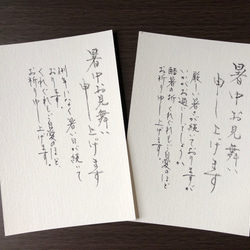 暑中お見舞い
申し上げます
厳しい暑さが続いておりますが
いかがお過ごしでしょう。
酷暑の折くれぐれもご自愛のほど
お祈り申し上げます。
暑中お見舞い
申し上げます
例年になく暑い日が続いて
おります。
くれぐれもご自愛のほど
お祈り申し上げます。